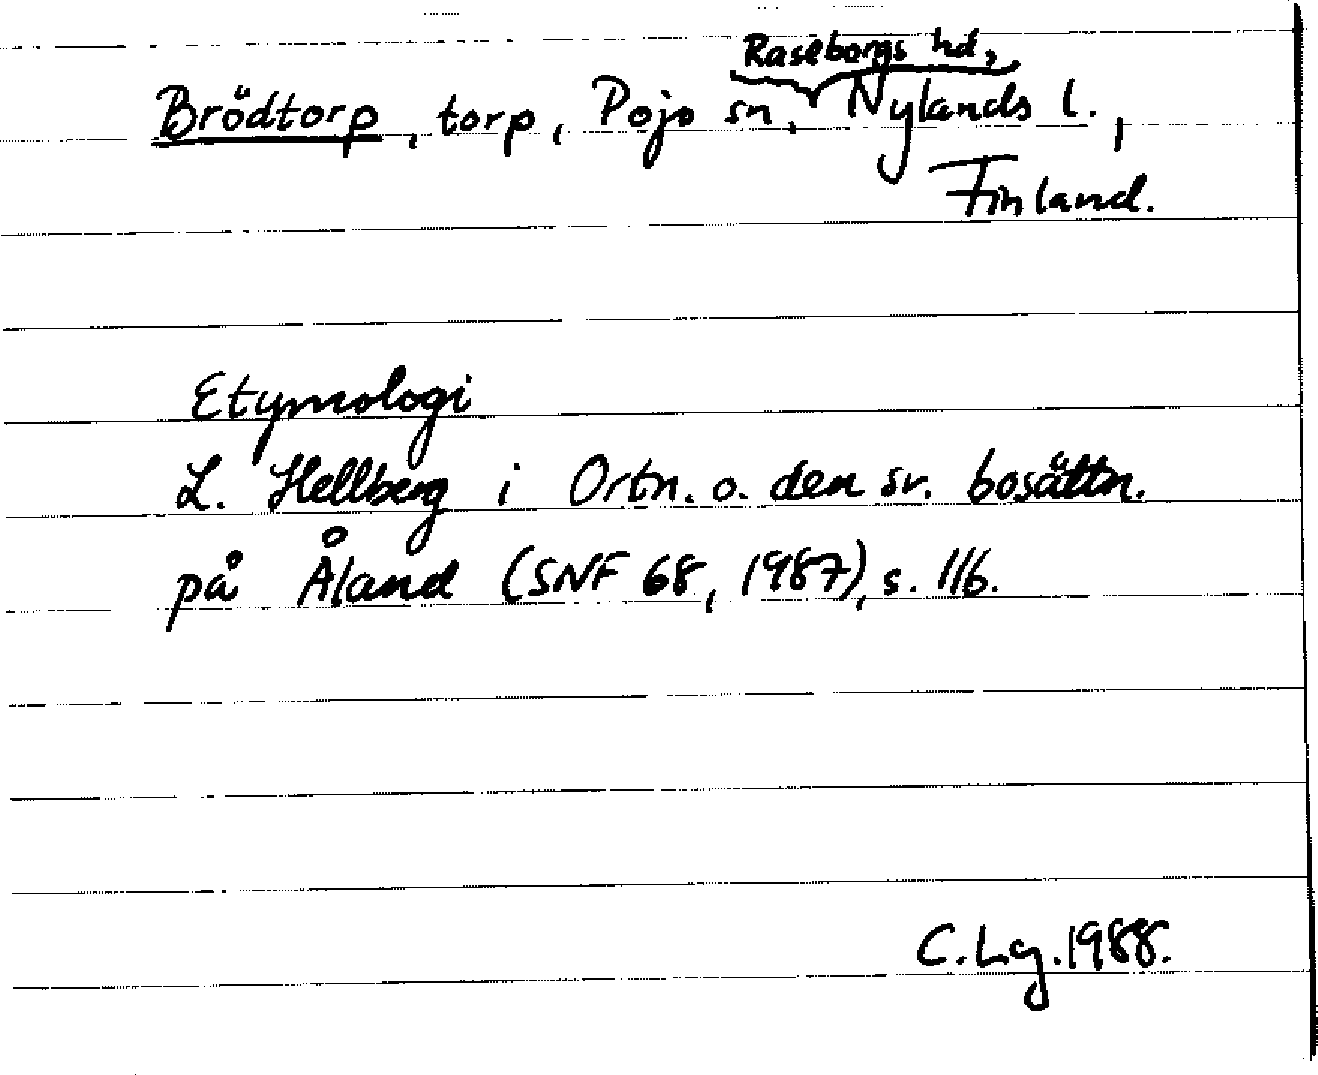 Brödtorp, torp, Pojo sn, Raseborgs hd, Nylands l.,
Finland.
Etymologi
L. Hellberg i Ortn. o. den sv. bosättn.
på Åland (SNF 68, 1987), s. 116.
C. Lg. 1988.